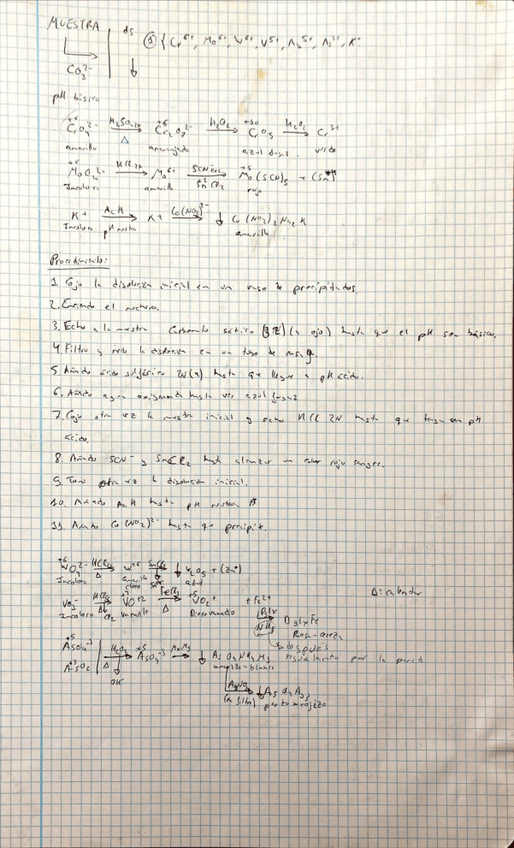 MUESTRA
ds
① { Cr⁶⁺, Mo⁶⁺, W⁶⁺, V⁵⁺, As⁵⁺, As³⁺, K⁺
CO₃²⁻
pH básico
CrO₄²⁻ H₂SO₄ 2N Δ Cr₂O₇²⁻ H₂O₂ CrO₅ H₂O₂ Cr³⁺
amarillo anaranjado azul verde
MoO₄²⁻ HCl 2N Mo⁶⁺ SCN⁻ SnCl₂ Mo(SCN)₅
Incoloro amarillo rojo
K⁺ AcH K⁺ Co(NO₂) ↓ Co(NO₂) Na₂K
Incoloro pH neutro amarillo
Procedimiento:
1. Cojo la disolución inicial en un vaso de precipitados.
2. Enciendo el mechero
3. Echo a la muestra Carbonato sódico (a ojo) hasta que el pH sea básico.
4. Filtro y meto la disolución en un tubo de ensayo.
5. Añado ácido sulfúrico 2N hasta que llegue a pH ácido.
6. Añado agua oxigenada hasta ver azul
7. Cojo otra vez la muestra inicial y echo HCl 2N hasta que tenga un pH
ácido.
8. Añado SCN⁻ y SnCl₂ hasta alcanzar un color rojo sangre.
9. Tomo otra vez la disolución inicial.
10. Añado AcH hasta pH neutro
11. Añado Co(NO₂) hasta que precipite.
WO₄²⁻ HCl Δ W⁶⁺ SnCl₂ ↓ W₂O₅
Incoloro amarillo claro azul
VO₃⁻ HCl Δ VO⁺² FeCl₃ Δ VO₂⁺ + Fe²⁺
Incoloro Cl₂
Δ: calentar
NH₃
Rosa
por la pared
AsO₄⁻³ H₂O₂ Δ AsO₄⁻³ ↓ AsO₄NH₄Mg
AsO₂ blanco
AgNO₃ ↓ AsO₄Ag₃